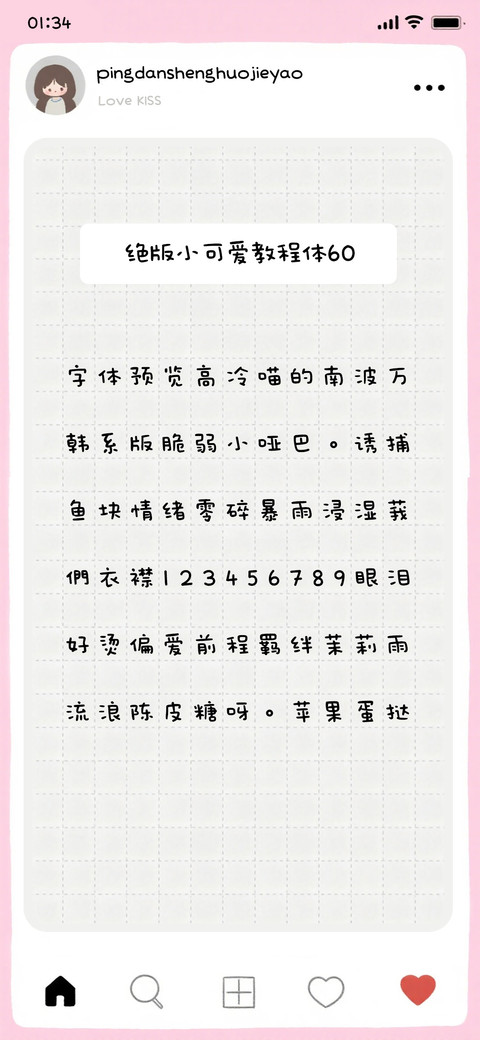 01:34
pingdanshenghuojieyao
Love KISS
绝版小可爱教程体60
字体预览高冷喵的南波万
韩系版脆弱小哑巴。诱捕
鱼块情绪零碎暴雨浸湿莪
們衣襟123456789眼泪
好烫偏爱前程羁绊茉莉雨
流浪陈皮糖呀。苹果蛋挞